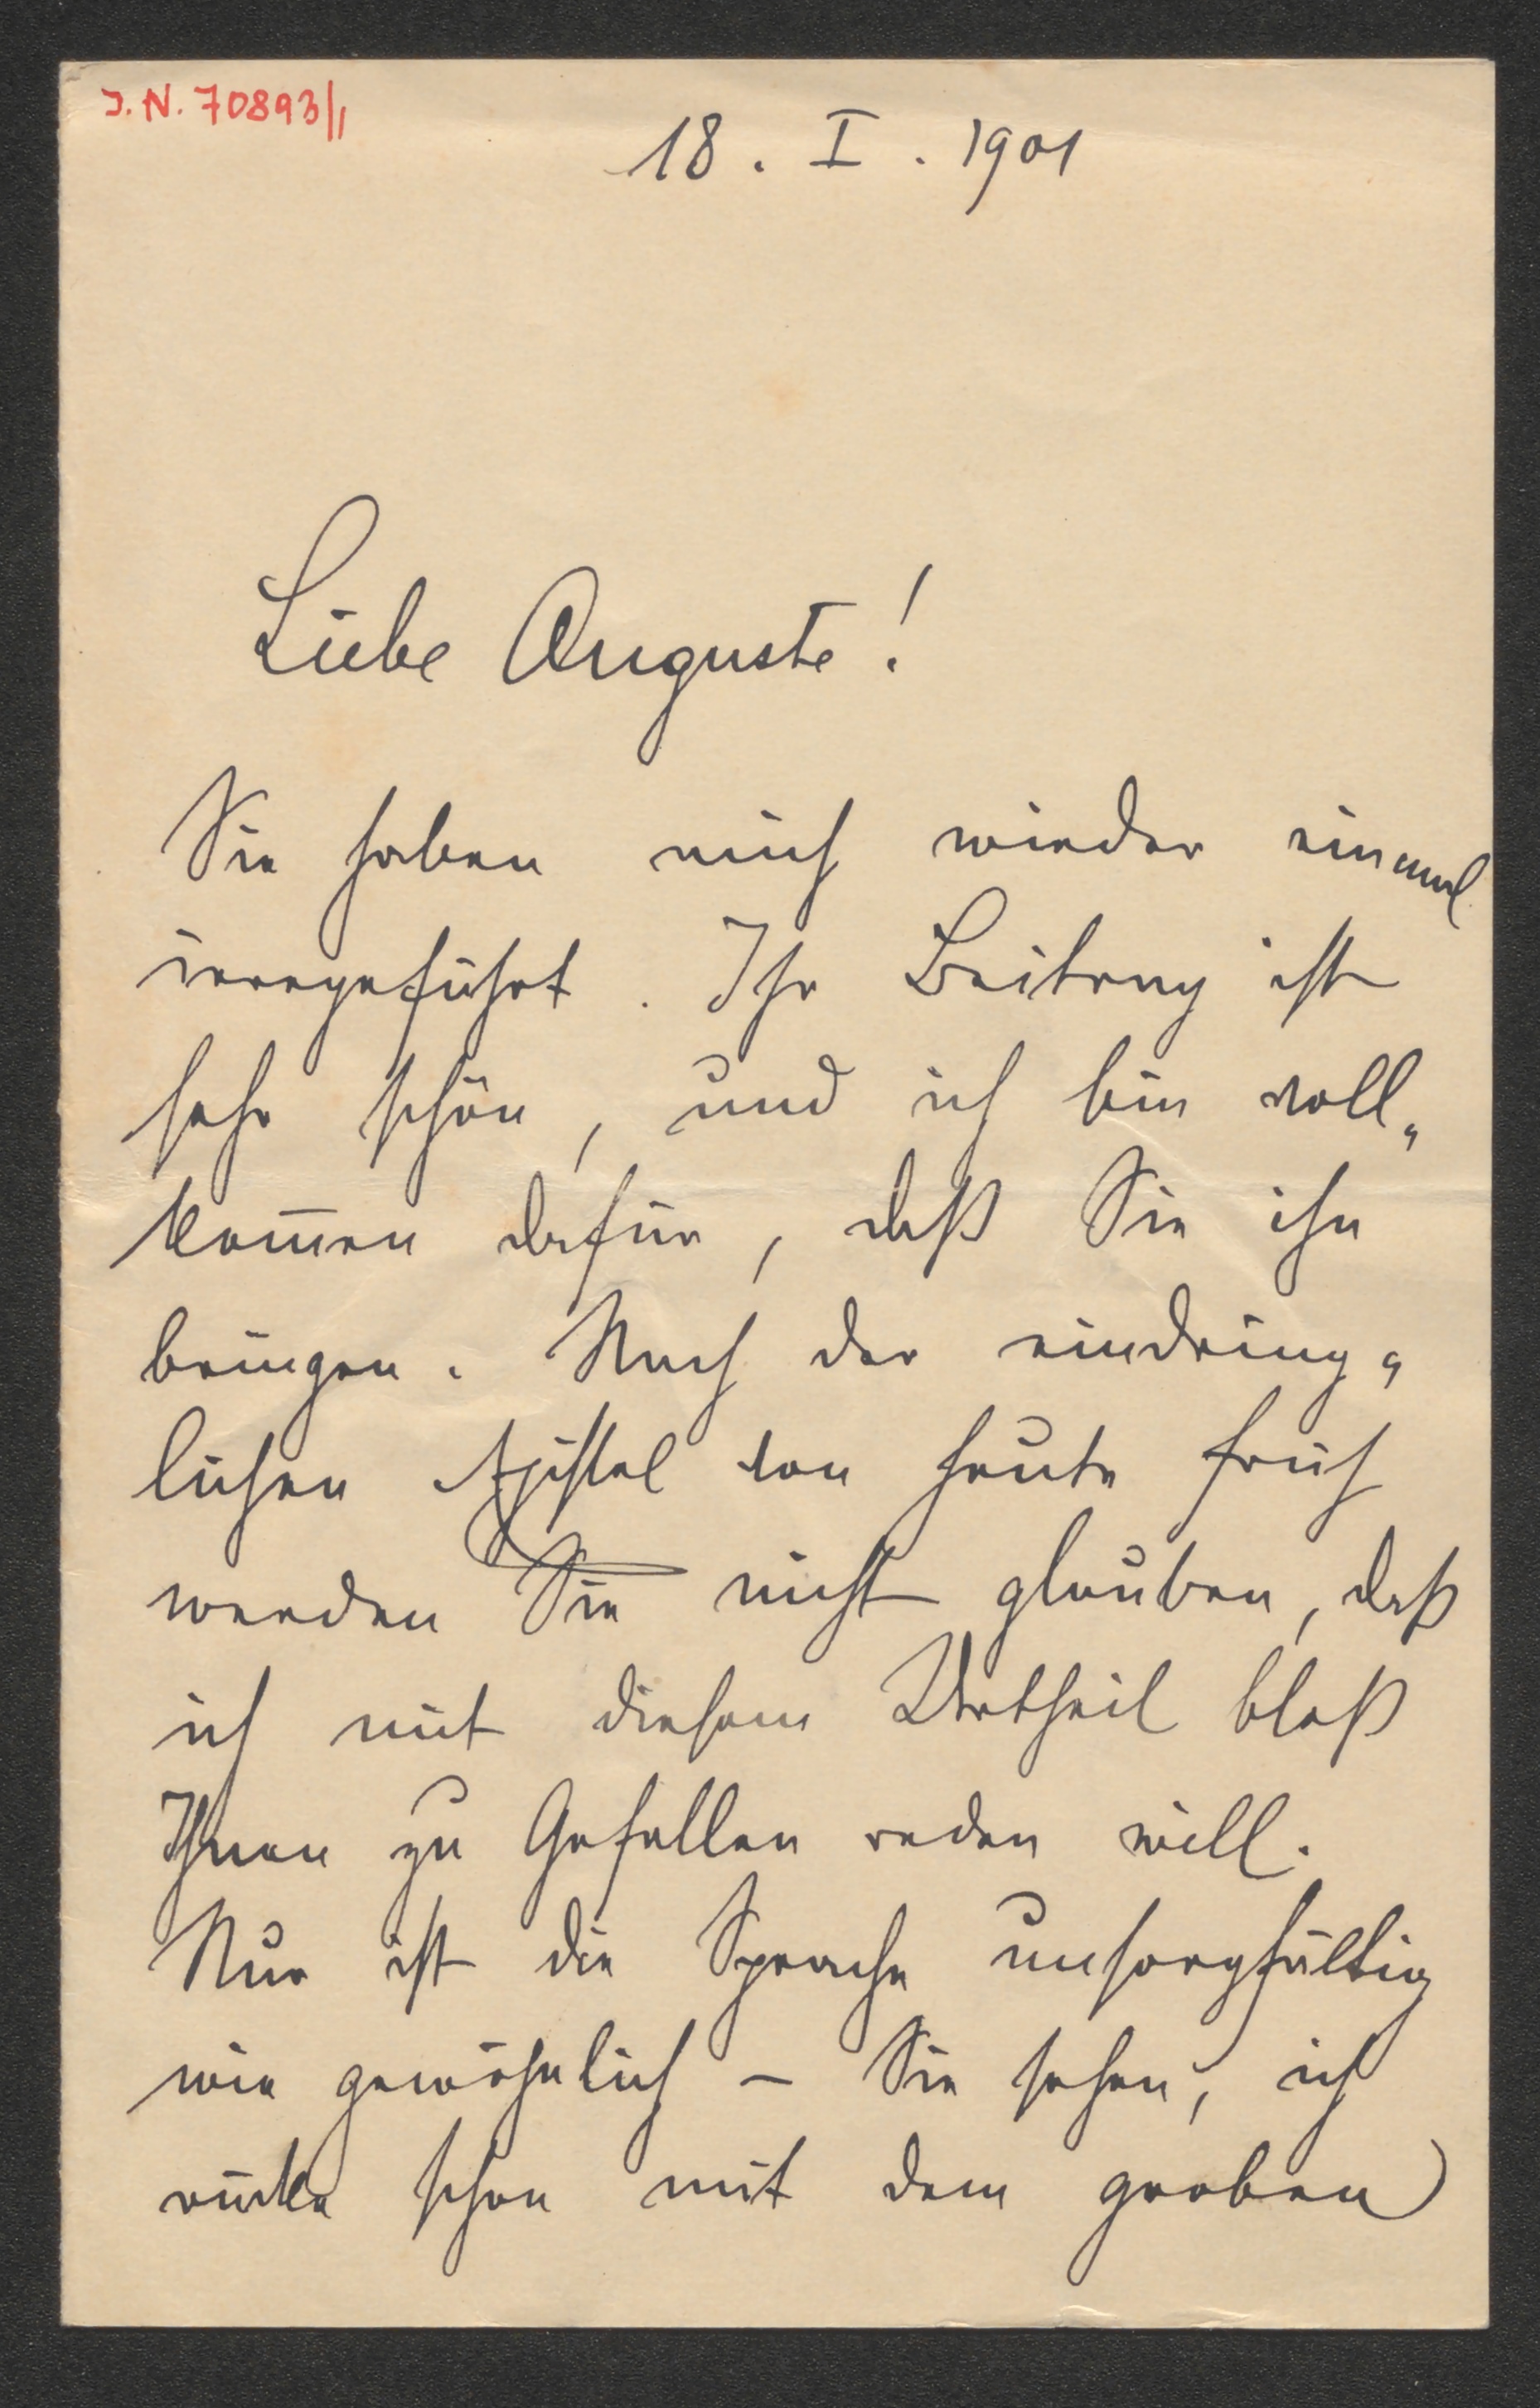 J. N. 70893/1
18. I. 1901
Liebe Auguste!
Sie haben mich wieder einmal
irregeführt. Ihr Beitrag ist
sehr schön, und ich bin voll„
kom̅en dafür, daß Sie ihn
bringen. Nach der eindring„
lichen Epistel von heute früh
werden Sie nicht glauben, daß
ich mit diesem Urtheil bloß
Ihnen zu Gefallen reden will.
Nur ist die Sprache unsorgfältig
wie gewöhnlich – Sie sehen, ich
rücke schon mit dem groben